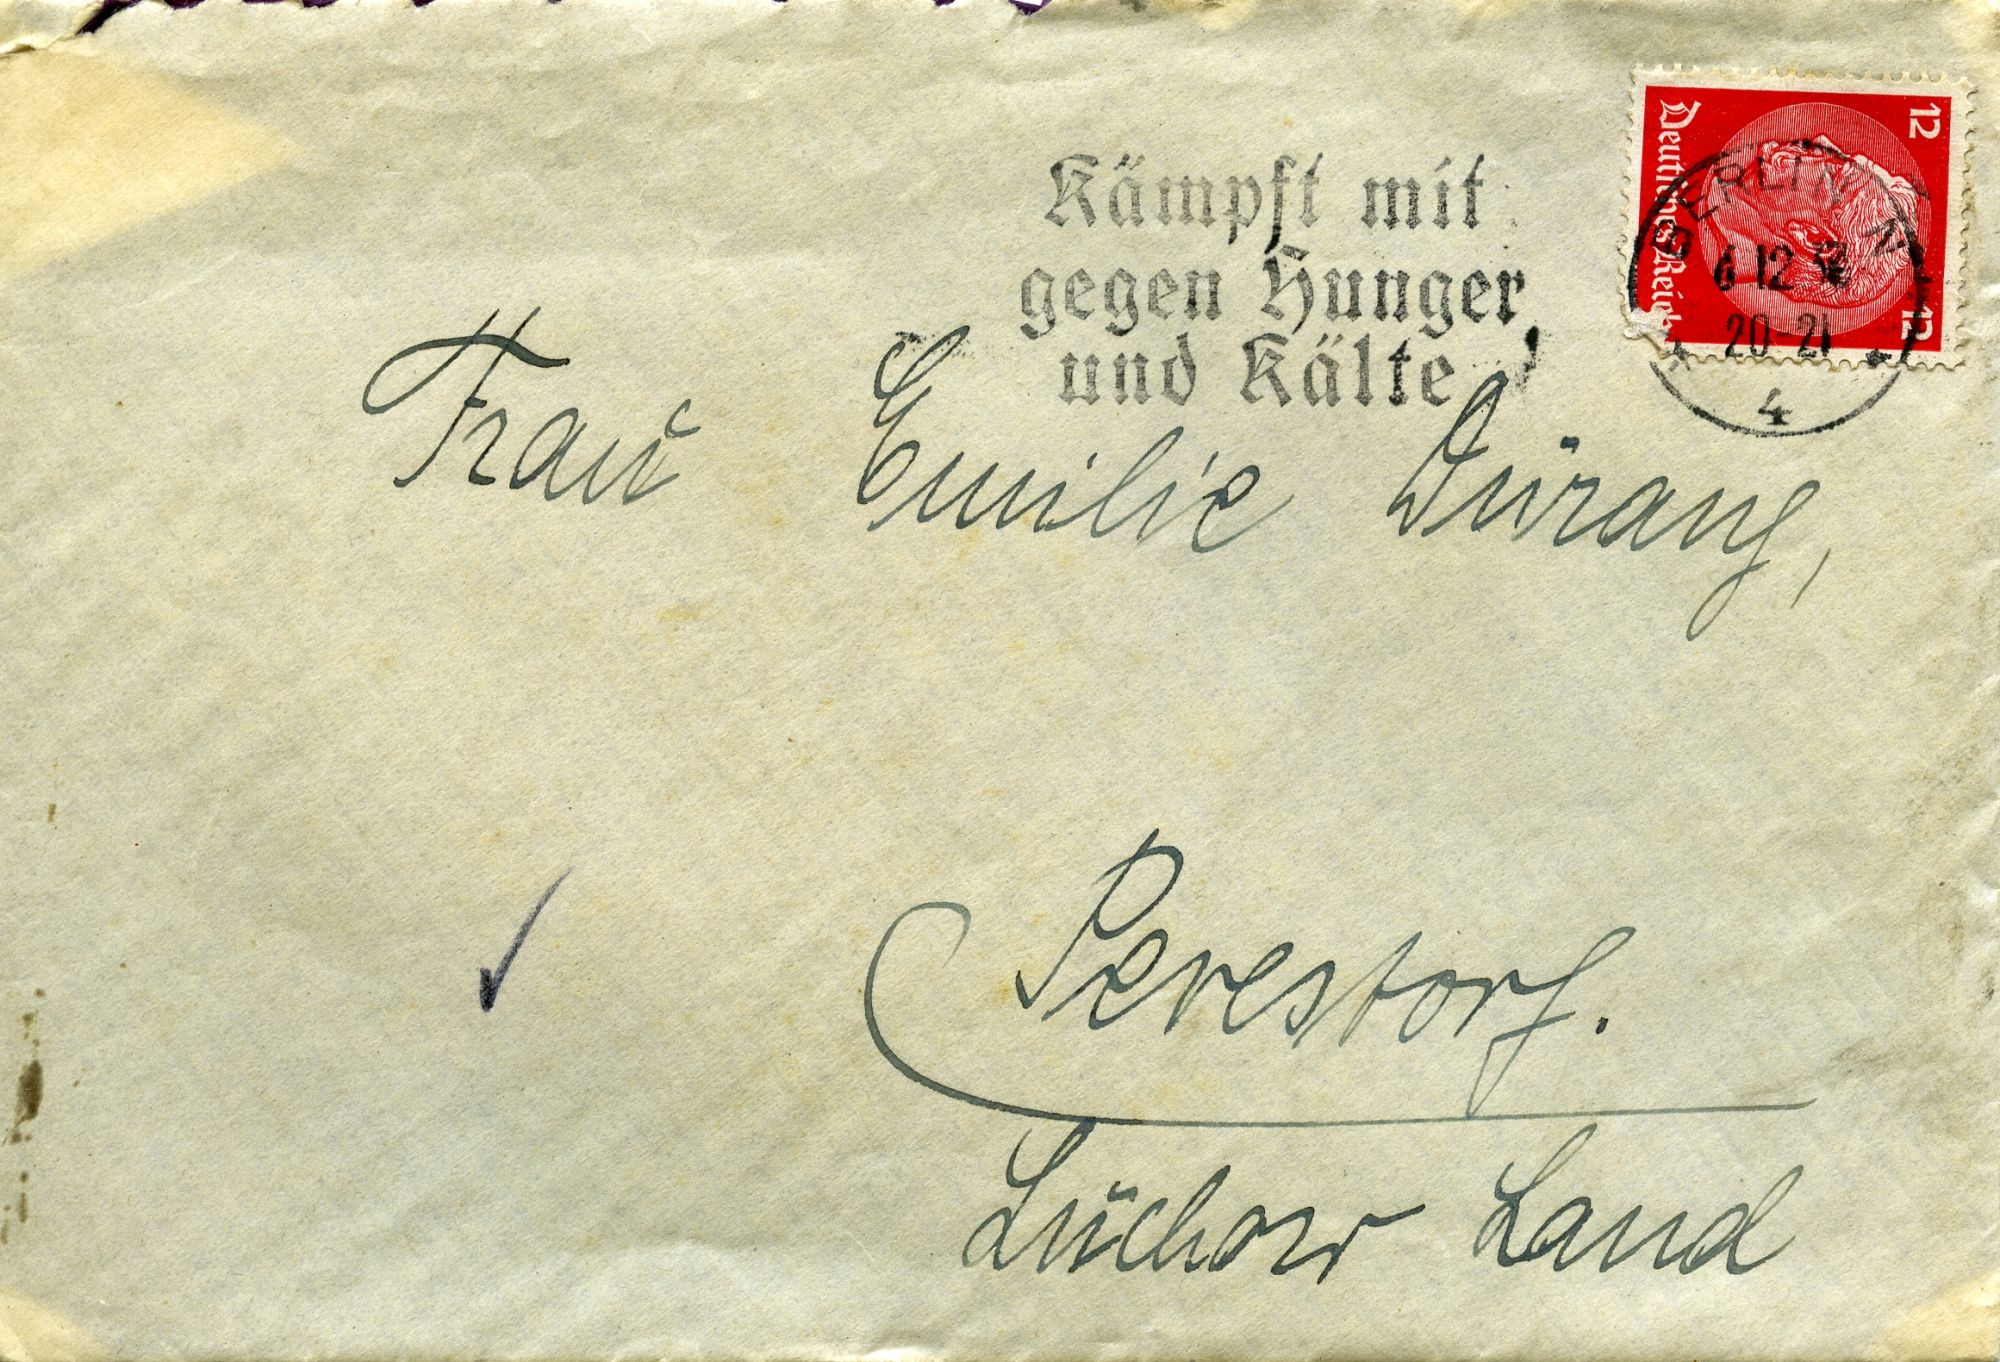 Kämpft mit
gegen Hunger
und Kälte!
12
Deutsches Reich
12
BERLIN N
6.12.
20-21
* 4 *
Frau Emilie Dürang,
Pevestorf.
Lüchow Land